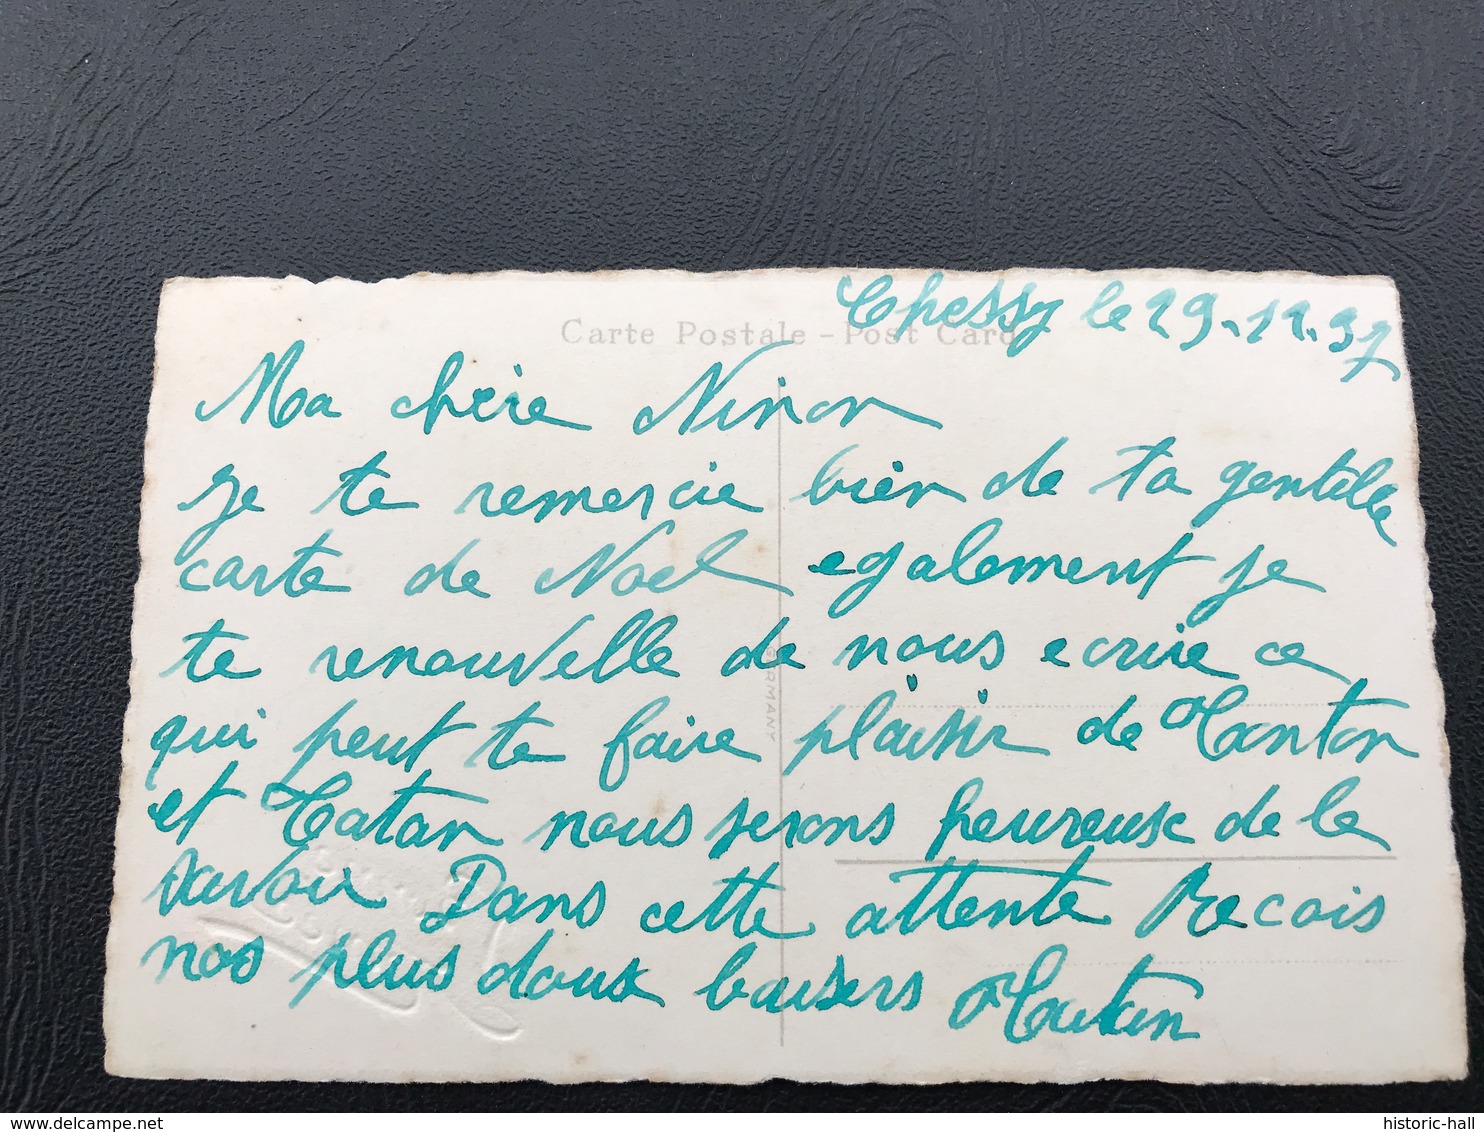 Chessy le 29.12.37
Carte Postale - Post Card
Ma chère Ninon
je te remercie bien de ta gentille
carte de Noel egalement je
te renouvelle de nous ecrire ce
qui peut te faire plaisir de Tonton
et Tatan nous serons heureuse de le
savoir Dans cette attente Recois
nos plus doux baisers
GERMANY
historic-hall